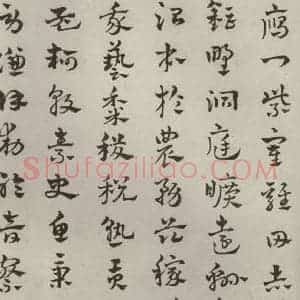 雁門紫塞雞田赤
鉅野洞庭曠遠緜
治本於農務茲稼
我藝黍稷稅熟貢
孟軻敦素史魚秉
勞謙謹勑聆音察
Shufaziliao.com